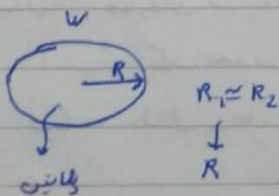 W
R
R₁ ≃ R₂
R